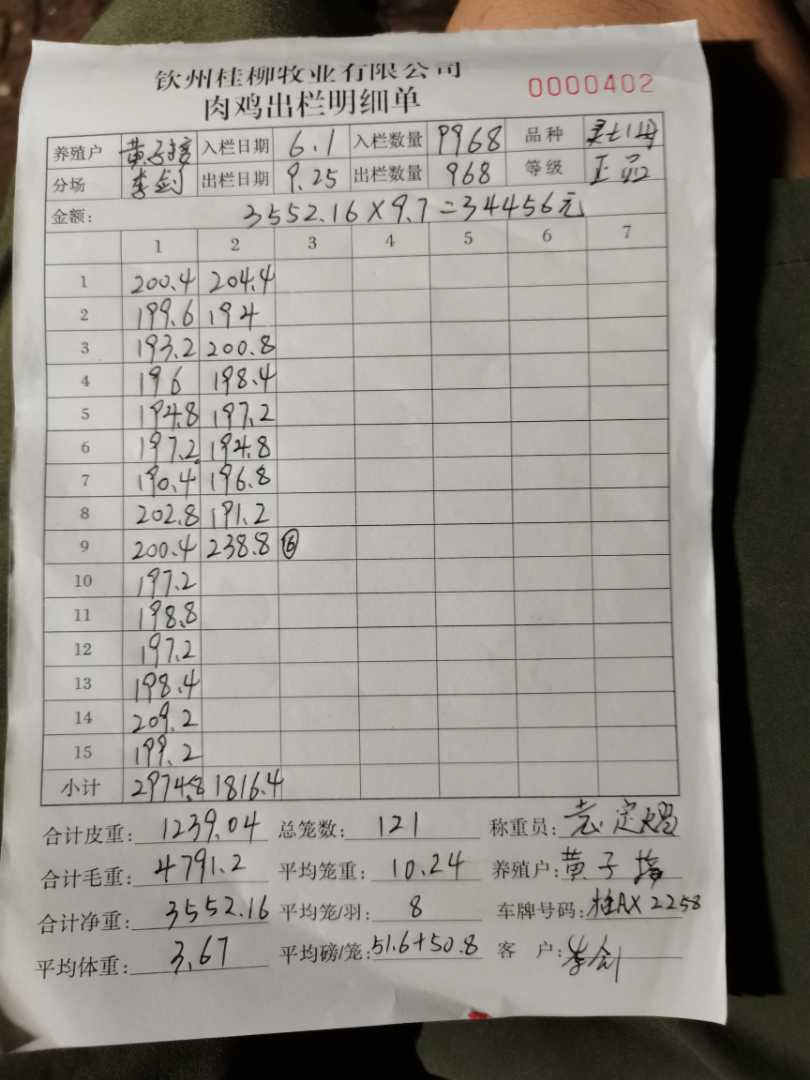 钦州桂柳牧业有限公司
肉鸡出栏明细单 0000402
养殖户 黄子 入栏日期 6.1 入栏数量 9968 品种
分场 李剑 出栏日期 9.25 出栏数量 968 等级 正品
金额: 3552.16×9.7=34456元
1 2 3 4 5 6 7
1 200.4 204.4
2 199.6 194
3 193.2 200.8
4 196 198.4
5 194.8 197.2
6 197.2 194.8
7 190.4 196.8
8 202.8 191.2
9 200.4 238.8 ⑥
10 197.2
11 198.8
12 197.2
13 198.4
14 209.2
15 199.2
小计 2974.8 1816.4
合计皮重: 1239.04 总笼数: 121 称重员: 定
合计毛重: 4791.2 平均笼重: 10.24 养殖户: 黄子
合计净重: 3552.16 平均笼/羽: 8 车牌号码: 桂AX2258
平均体重: 3.67 平均磅/笼: 51.6+50.8 客户: 李剑